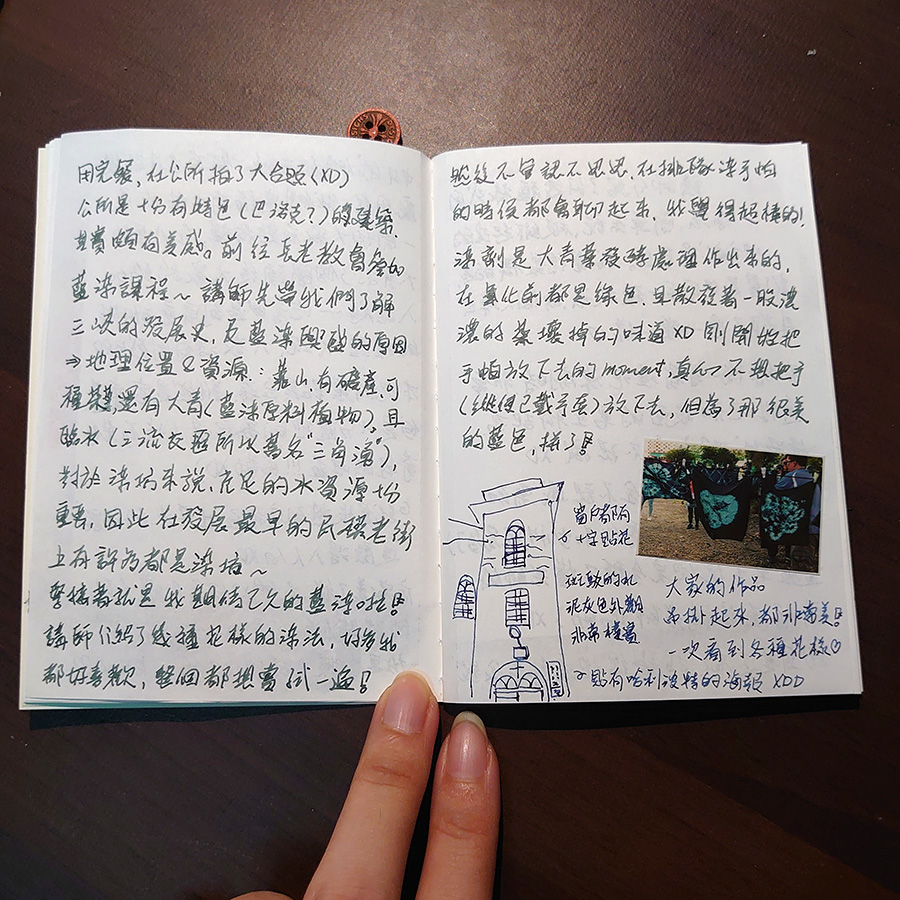 用完餐，在公所拍了大合照(XD)
公所是十分有特色(巴洛克?)的建築，
其實頗有美感。前往長老教會參加
藍染課程~ 講師先帶我們了解
三峽的發展史，及藍染興盛的原因
⇒地理位置&資源：靠山，有礦產，可
種茶還有大青(藍染原料植物)，且
臨水(三流交匯所以舊名"三角湧")，
對於染坊來說，充足的水資源十分
重要，因此在發展最早的民權老街
上有許多都是染坊~
緊接著就是我期待已久的藍染啦!
講師介紹了幾種花樣的染法，好多我
都好喜歡，整個都想嘗試一遍!
然後不管認不認識，在排隊染手帕
的時候都會聊起來，我覺得超棒的!
染劑是大青葉發酵處理作出來的，
在氧化前都是綠色，且散發著一股濃
濃的葉壞掉的味道XD 剛開始把
手帕放下去的moment，真心不想把手
(縱使已戴手套)放下去，但為了那很美
的藍色，拼了!
窗戶都有
十字貼花
斑駁的水
泥灰色外觀
非常樸實
大家的作品
吊掛起來，都非常美!
一次看到各種花樣♡
貼有哈利波特的海報 XDD